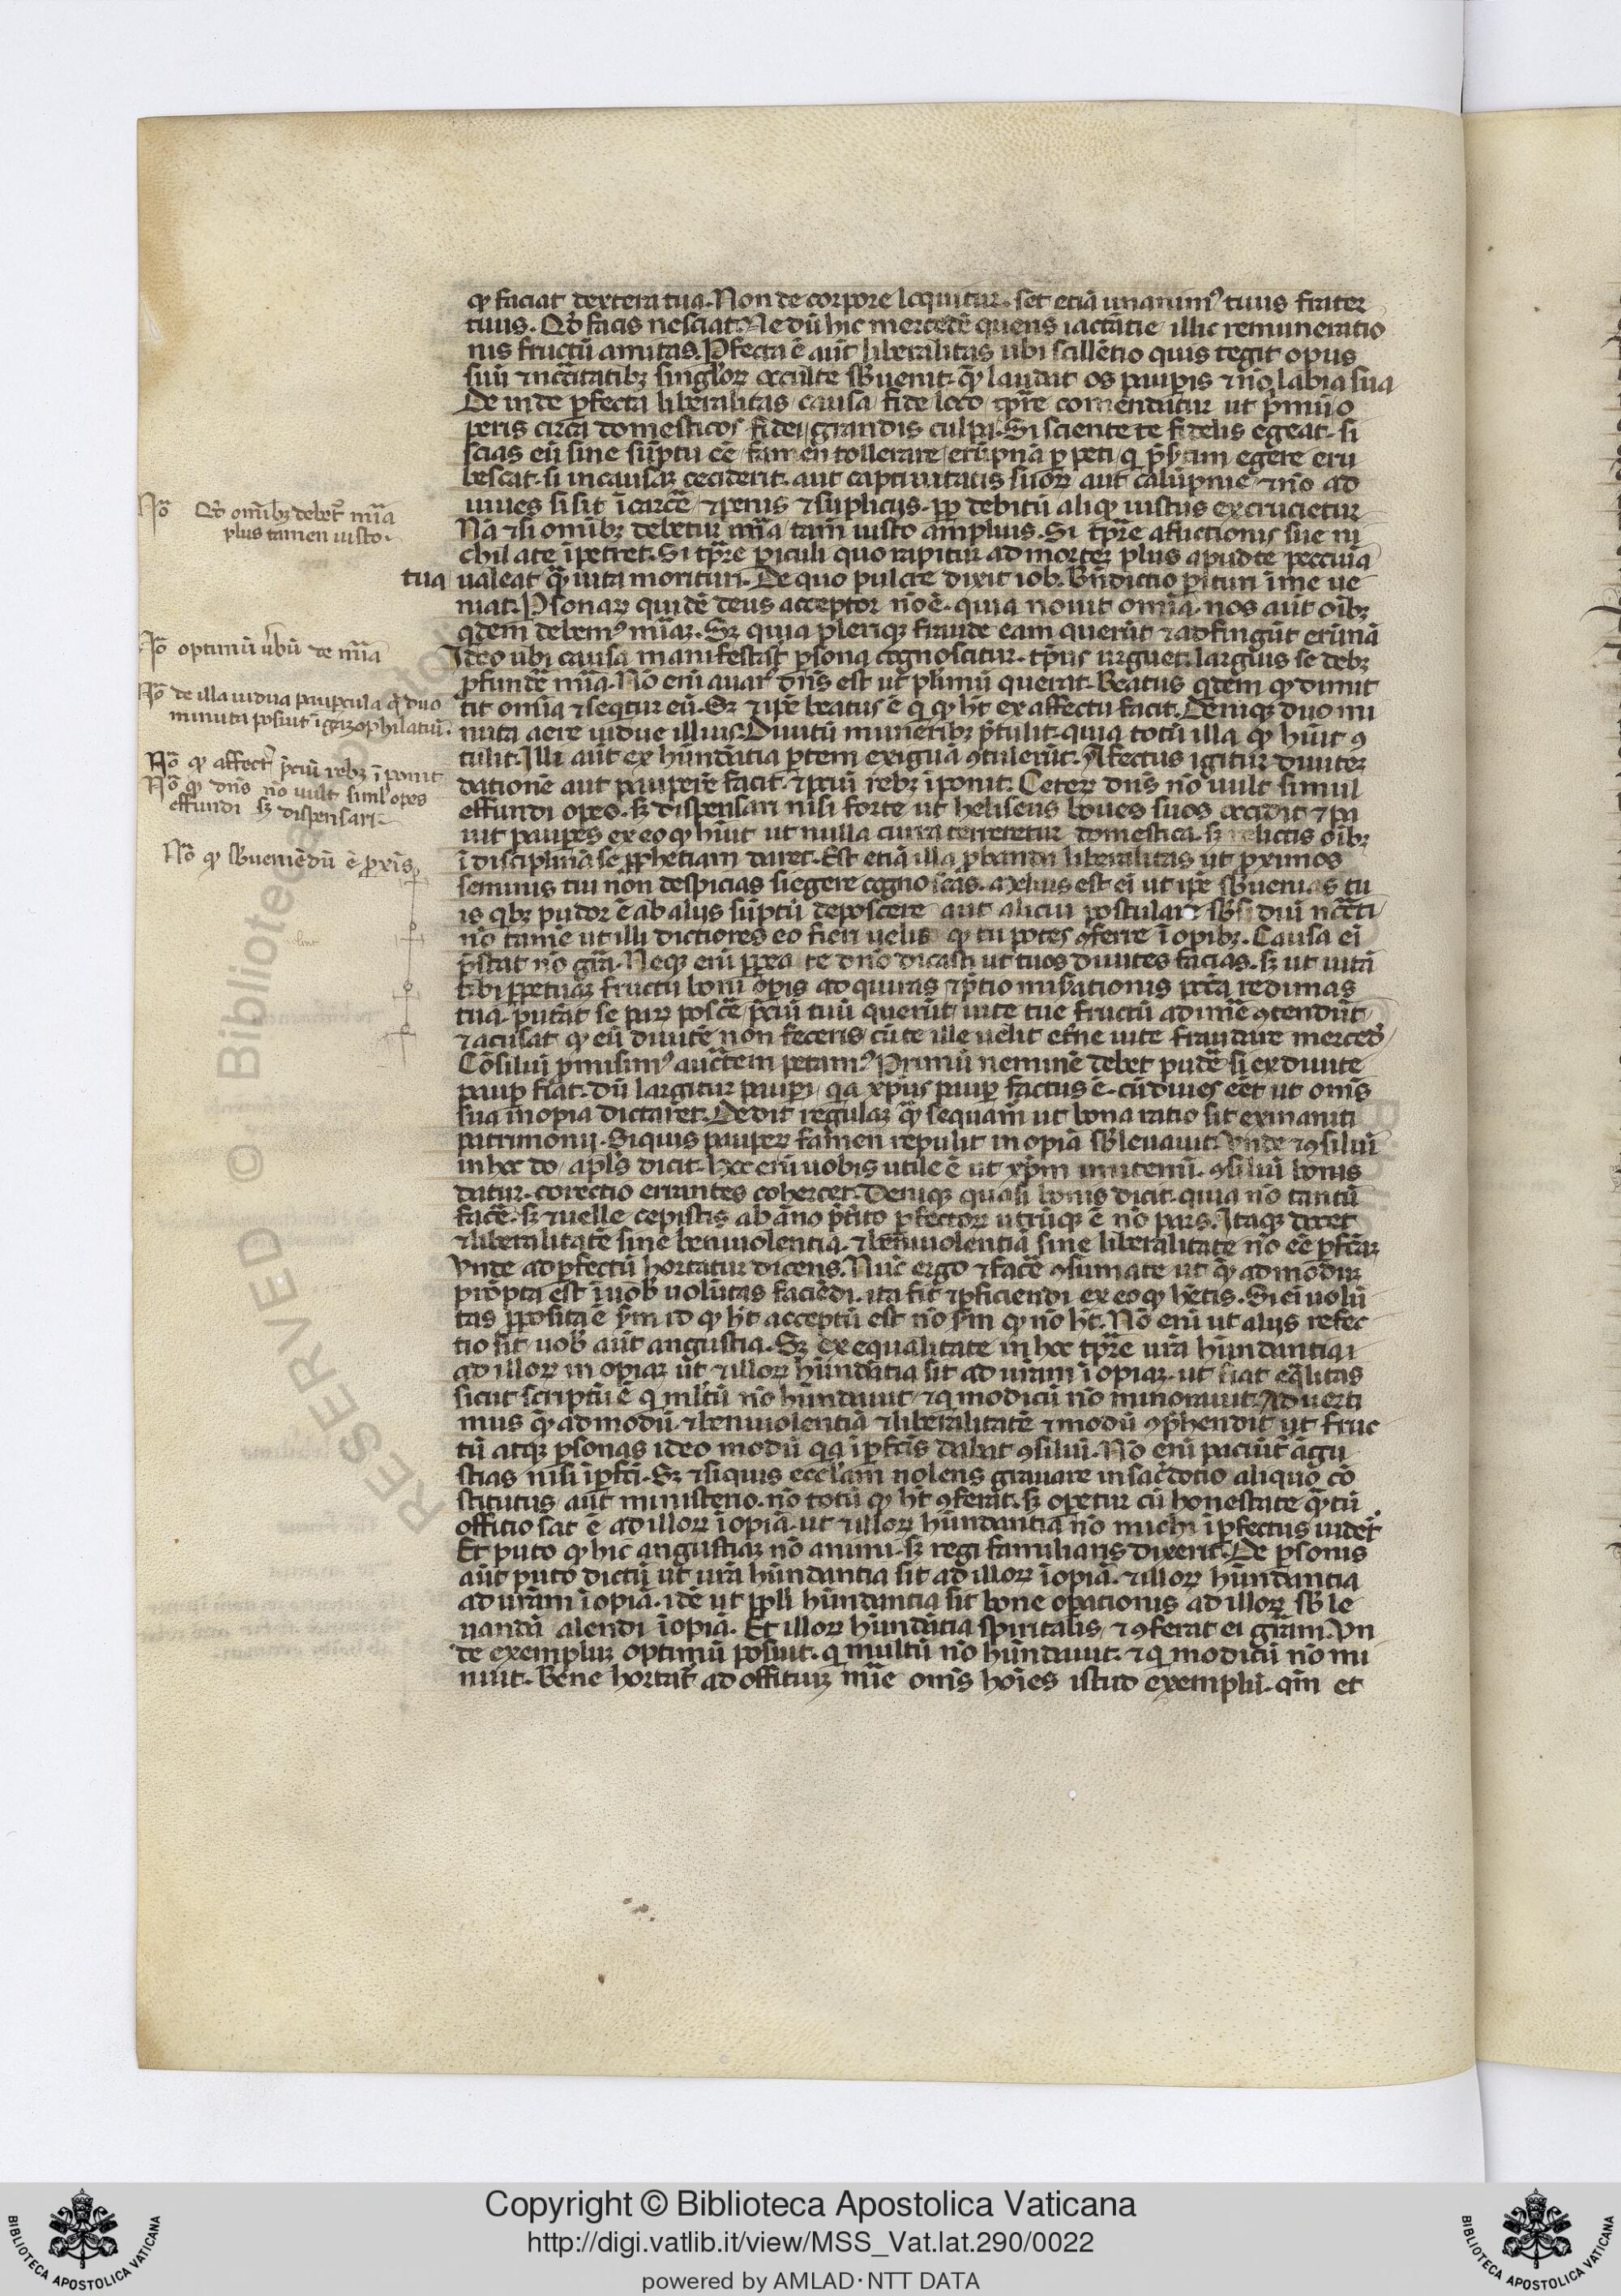 qd faciat dextera tua. Non de corpore loquitur. set etiā unanimꝰ tuus frater
tuus. Qd facis nesciat. Ne dū hic mercedē queris iactātie illic remuneratio
nis fructū amitas. Pfecta ē aut liberalitas ubi scillētio quis tegit opus
suū ⁊ necītatibꝫ singlorꝫ occulte sbuenit. quē laudat os pauperis ⁊ nō labia sua
De inde pfecta liberalitas causa fide loco tpre comendatur ut pmū o
peris circa domesticos fidei grandis culpa. Si sciente te fidelis egeat. si
scias eū sine sūptu eē famen tollerare erūpnā perpeti q psertim egere eru
bescat. si in causaꝫ ceciderit. aut captiuitatis suorꝫ aut calūpnie ⁊ nō ad
iuues si sit ī carcē ⁊ penis ⁊ supliciis. pp debitū aliqꝫ iustus excrucietur
Nā ⁊ si omībꝫ debetur mīa tam iusto amplius. Si tpre aflictionis sue ni
chil a te īpetret. Si tpre piculi quo rapitur ad morteꝫ plus apud te peccunia
tua ualeat quā uita morituri. De quo pulcre dixit iob. Bndictio pituri ī me ue
niat. Psonarꝫ quidē deus acceptor nō ē. quia nouit omīa. nos aut oībꝫ
qdem debemꝰ mīaꝫ. Sꝫ quia pleriqꝫ fraude eam querūt ⁊ adfingūt erūnā
Ideo ubi causa manifestast psona cognoscitur. tpus urguet. largius se debꝫ
pfundē mīa. Nō eni auarꝰ dns est ut plimū querat. Beatus qdem qui dimit
tit omīa ⁊ seqtur eū. Sꝫ ⁊ ipe beatus ē q qd ht ex affectu facit. Deniqꝫ duo mi
nuta aere uidue illius. Diuitū muneribꝫ ptulit. quia totū illa qd hūit 9
tulit. Illi aut ex hūndātia ptem exiguā 9tulerūt. Afectus igitur diuiteꝫ
datione aut pauperē facit. ⁊ pciū rebꝫ īponit. Ceterꝫ dns nō uult simul
effundi opes. sꝫ dispensari nisi forte ut heliseus boues suos occidit ⁊ pa
uit paupes ex eo qd hūit ut nulla cura terreretur domestica. sꝫ relictis oībꝫ
ī disciplinā se pphetiam daret. Est etiā illa pbanda liberalitas ut pximos
seminis tui non despicias si egere cognoscas. Melius est ei ut ipe sbuenias tu
is qbꝫ pudor ē ab aliis sūptū deposcere aut alicui postulare sbsidiū necīti
nō tamē ut illi dictiores eo fieri uelis qd tu potes 9ferre ī opibꝫ. Causa ei
pstat nō gra. Neqꝫ eni pprea te dno dicasti ut tuos diuites facias. sꝫ ut uitā
tibi ppetuaꝫ fructu boni opis adquiras ⁊ ptio misationis pcta redimas
tua. putāt se parꝫ poscē pciū tuū querūt uite tue fructū adimē 9tendūt
⁊ acusat qd eū diuitē non feceris cū te ille uelit eterne uite fraudare mercede
Cōsiliū pmisimꝰ auctētem petamꝰ. Primū neminē debet pudē si ex diuite
paup fiat. dū largitur paupi qa xpius paup factus ē. cū diues eēt ut omes
sua inopia dictaret. Dedit regulaꝫ quā sequam ut bona ratio sit exinaniti
patrimonij. Siquis pauperꝫ famen repulit inopiā sbleuauit. Vnde ⁊ 9siliū
in hoc do apls dicit. hoc eni uobis utile ē ut xpm imitemi. 9siliū bonis
datur. corectio errantes cohercet. Deniqꝫ quasi bonis dicit. quia nō tantū
facē. sꝫ ⁊ uelle cepistis ab āno ptito pfectorꝫ utrūqꝫ ē nō pars. Itaqꝫ docet
⁊ liberalitatē sine beniuolentia. ⁊ beniuolentiā sine liberalitate nō eē pfctaꝫ
Vnde ad pfectū hortatur dicens. Nūc ergo ⁊ facē 9sumate ut quē ad modū
prōpta est ī uob uolūtas faciēdi. ita sit ⁊ pficiendi ex eo qd hetis. Si ei uolū
tas pposita ē sm id qd ht acceptū est nō sm qd nō ht. Nō eni ut aliis refec
tio sit uob aut angustia. Sꝫ ex equalitate in hoc tpre ura hūndantia
ad illorꝫ inopiaꝫ ut ⁊ illorꝫ hūndātia sit ad uram ī opiaꝫ. ut fiat eqlitas
sicut scriptū ē q mltū nō hūndauit ⁊ q modicū nō minorauit. Aduerti
mus quē admodū ⁊ beniuolentiā ⁊ liberalitatē ⁊ modū 9phendit ut fruc
tū atqꝫ psonas ideo modū qa īpfectis dabat 9siliū. Nō eni paciūt āgu
stias nisi īpfcti. Sꝫ ⁊ siquis ecclam nolens grauare in sacdotio aliquo cō
stitutus aut ministerio. nō totū qd ht 9ferat. sꝫ operetur cū honestate quātū
officio sat ē ad illorꝫ ī opiā. ut ⁊ illorꝫ hūndantia nō michi īpfectus uidet
Et puto qd hic angustiaꝫ nō animi. sꝫ regi familiaris dixerit. De psonis
aut puto dictū ut ura hūndantia sit ad illorꝫ ī opiā. ⁊ illorꝫ hūndantia
ad uram ī opiā. idē ut ppli hūndantia sit bone opationis ad illorꝫ sb le
uandā alendi ī opiā. Et illorꝫ hūndātia spiritalis ⁊ 9ferat ei gram. Vn
de exempluꝫ optimū posuit. q multū nō hūndauit. ⁊ q modicū nō mi
nuit. Bene hortat ad offitiuꝫ mie omes hoies istud exemplū. qm et
Nō Qd omībꝫ debet mīa
plus tamen iusto.
Nō optimū ubū de mīa
Nō de illa uidua paupcula q duo
minuta posuit ī gazophilatiū.
Nō qd affectꝰ pciū rebꝫ īponit
Nō qd dns nō uult siml opes
effundi sꝫ dispensari
Nō qd sbueniēdū ē pxis
© Biblioteca Apostolica
RESERVED
Copyright © Biblioteca Apostolica Vaticana
http://digi.vatlib.it/view/MSS_Vat.lat.290/0022
powered by AMLAD·NTT DATA
BIBLIOTECA APOSTOLICA VATICANA
BIBLIOTECA APOSTOLICA VATICANA